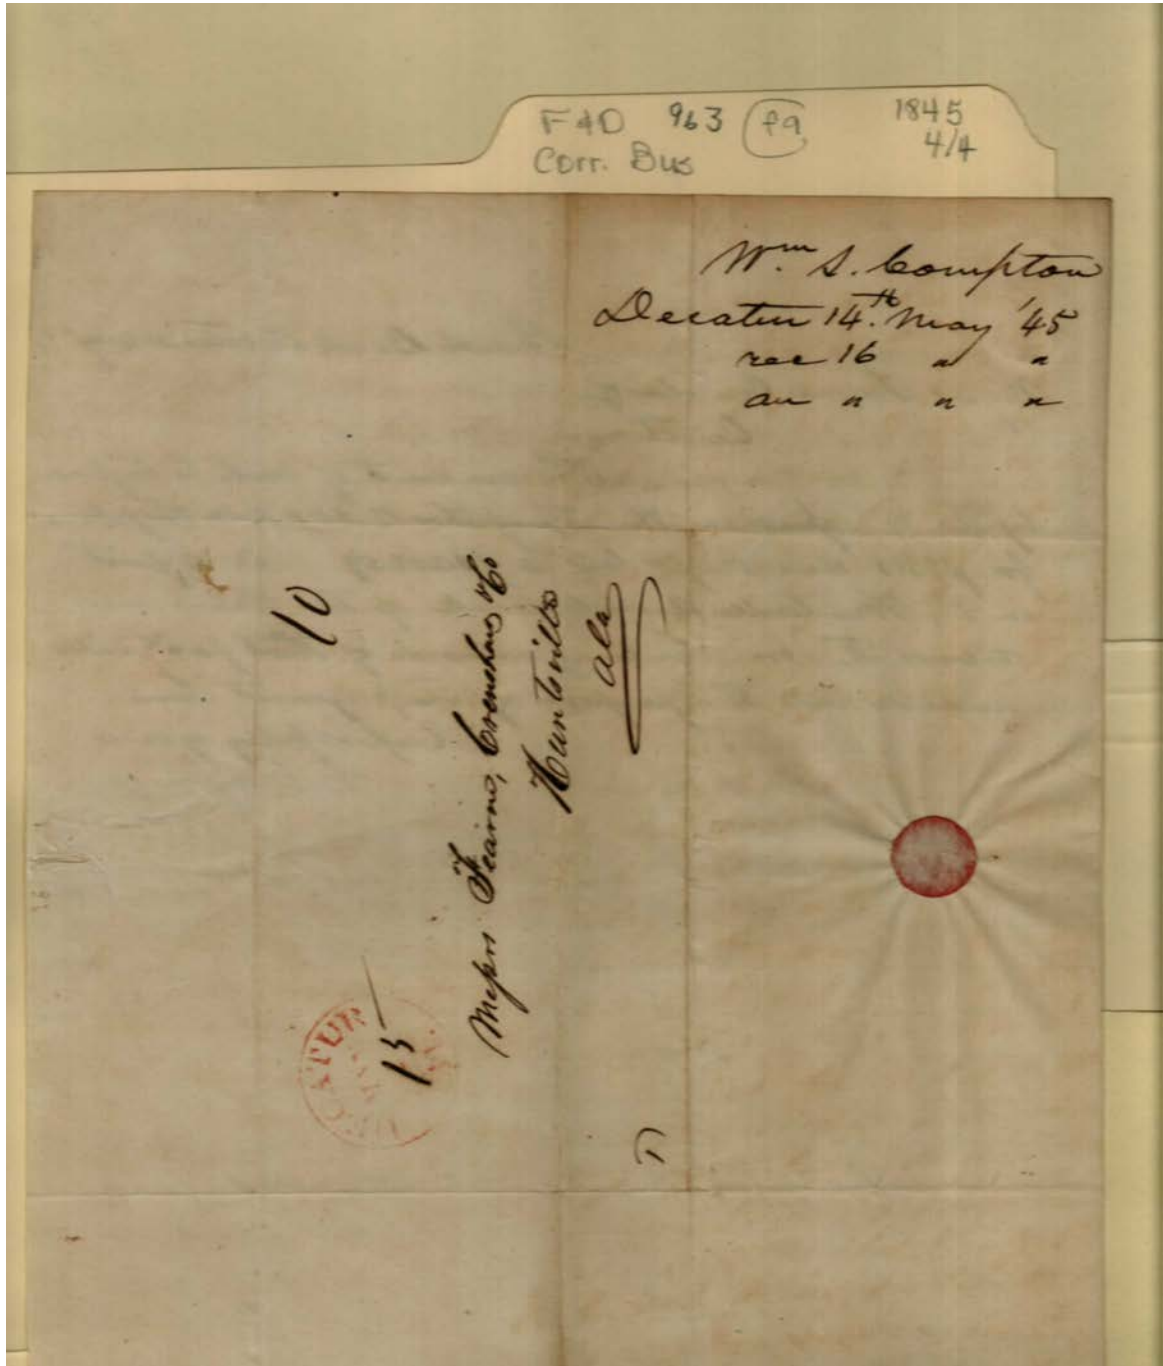 F&D 963 f9 1845
Corr. Bus 4/4
Wm S. Compton
Decatur 14th May '45
rec 16 " "
an " " "
10
Messrs Fearns, Crenshaw & Co
Huntsville
Ala
DECATUR
15